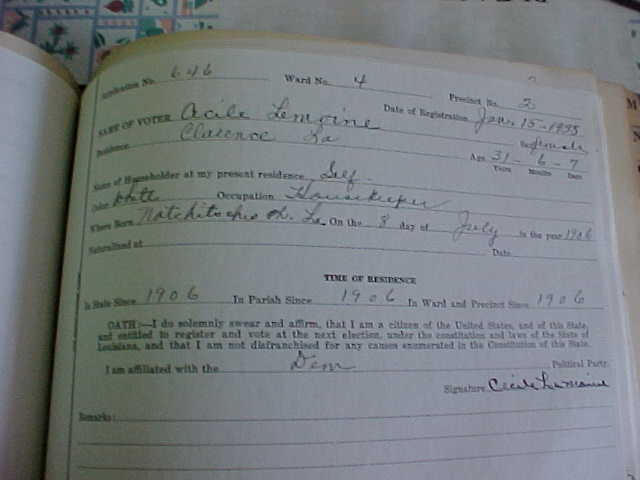 Application No. 646 Ward No. 4 Precinct No. 2
Date of Registration Jan. 15-1935
NAME OF VOTER Cecile Lemoine
Residence Clarence La Sex female
Age 31 - 6 - 7
Years Months Days
Name of Householder at my present residence Self.
Color White Occupation Housekeeper
Where Born Natchitoches La. On the 8 day of July in the year 1906
Naturalized at Date
TIME OF RESIDENCE
In State Since 1906 In Parish Since 1906 In Ward and Precinct Since 1906
OATH:—I do solemnly swear and affirm, that I am a citizen of the United States, and of this State,
and entitled to register and vote at the next election, under the constitution and laws of the State of
Louisiana, and that I am not disfranchised for any causes enumerated in the Constitution of this State.
I am affiliated with the Dem Political Party.
Signature Cecile Lemoine
Remarks: